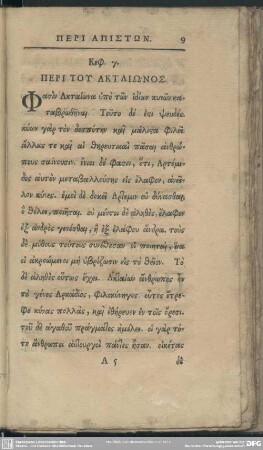 ΠΕΡΙ ΑΠΙΣΤΩΝ. 9
Κεφ. γ.
ΠΕΡΙ ΤΟΥ ΑΚΤΑΙΩΝΟΣ.
Φασὶν Ἀκταίωνα ὑπὸ τῶν ἰδίων κυνῶν κα-
ταβρωθῆναι. Τοῦτο δέ ἐςι ψευδές.
κύων γὰρ τὸν δεσπότην καὶ μάλιςα φιλεῖ
ἄλλως τε καὶ αἱ θηρευτικαὶ πᾶσαι ἀνθρώ-
πους σαίνουσιν. ἔνιοι δέ φασιν, ὅτι, Ἀρτέμι-
δος αὐτὸν μεταβαλλούσης εἰς ἔλαφον, ἀνεῖ-
λον κύνες. ἐμοὶ δὲ δοκεῖ Ἄρτεμιν οὐ δύνασθαι,
ὃ θέλει, ποιῆσαι. οὐ μέντοι δὲ ἀληθὲς, ἔλαφον
ἐξ ἀνδρὸς γενέσθαι, ἢ ἐξ ἐλάφου ἄνδρα. τοὺς
δὲ μύθους τούτους συνέθεσαν οἱ ποιηταὶ, ἵνα
οἱ ἀκροώμενοι μὴ ὑβρίζωσιν εἰς τὸ θεῖον. Τὸ
δὲ ἀληθὲς οὕτως ἔχει. Ἀκταίων ἄνθρωπος ἦν
τὸ γένος Ἀρκάδιος, φιλοκύνηγος. οὗτος ἔτρε-
φε κύνας πολλὰς, καὶ ἐθήρευεν ἐν τοῖς ὄρεσι.
τοῦ δὲ ἀγαθοῦ πράγματος ἠμέλει. οἱ γὰρ τό-
τε ἄνθρωποι αὐτουργοὶ πάντες ἦσαν. οἰκέτας
A 5 δὲ